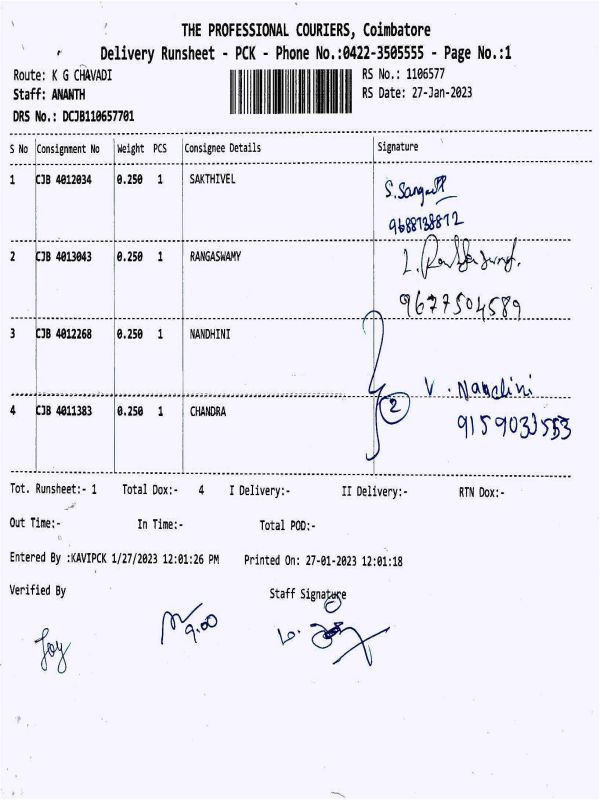 THE PROFESSIONAL COURIERS, Coimbatore
Delivery Runsheet - PCK - Phone No.:0422-3505555 - Page No.:1
Route: K G CHAVADI RS No.: 1106577
Staff: ANANTH RS Date: 27-Jan-2023
DRS No.: DCJB110657701
S No Consignment No Weight PCS Consignee Details Signature
1 CJB 4012034 0.250 1 SAKTHIVEL
2 CJB 4013043 0.250 1 RANGASWAMY
9677504589
3 CJB 4012268 0.250 1 NANDHINI
V. Nandini
2
4 CJB 4011383 0.250 1 CHANDRA
Tot. Runsheet:- 1 Total Dox:- 4 I Delivery:- II Delivery:- RTN Dox:-
Out Time:- In Time:- Total POD:-
Entered By :KAVIPCK 1/27/2023 12:01:26 PM Printed On: 27-01-2023 12:01:18
Verified By Staff Signature
Joy 9.00